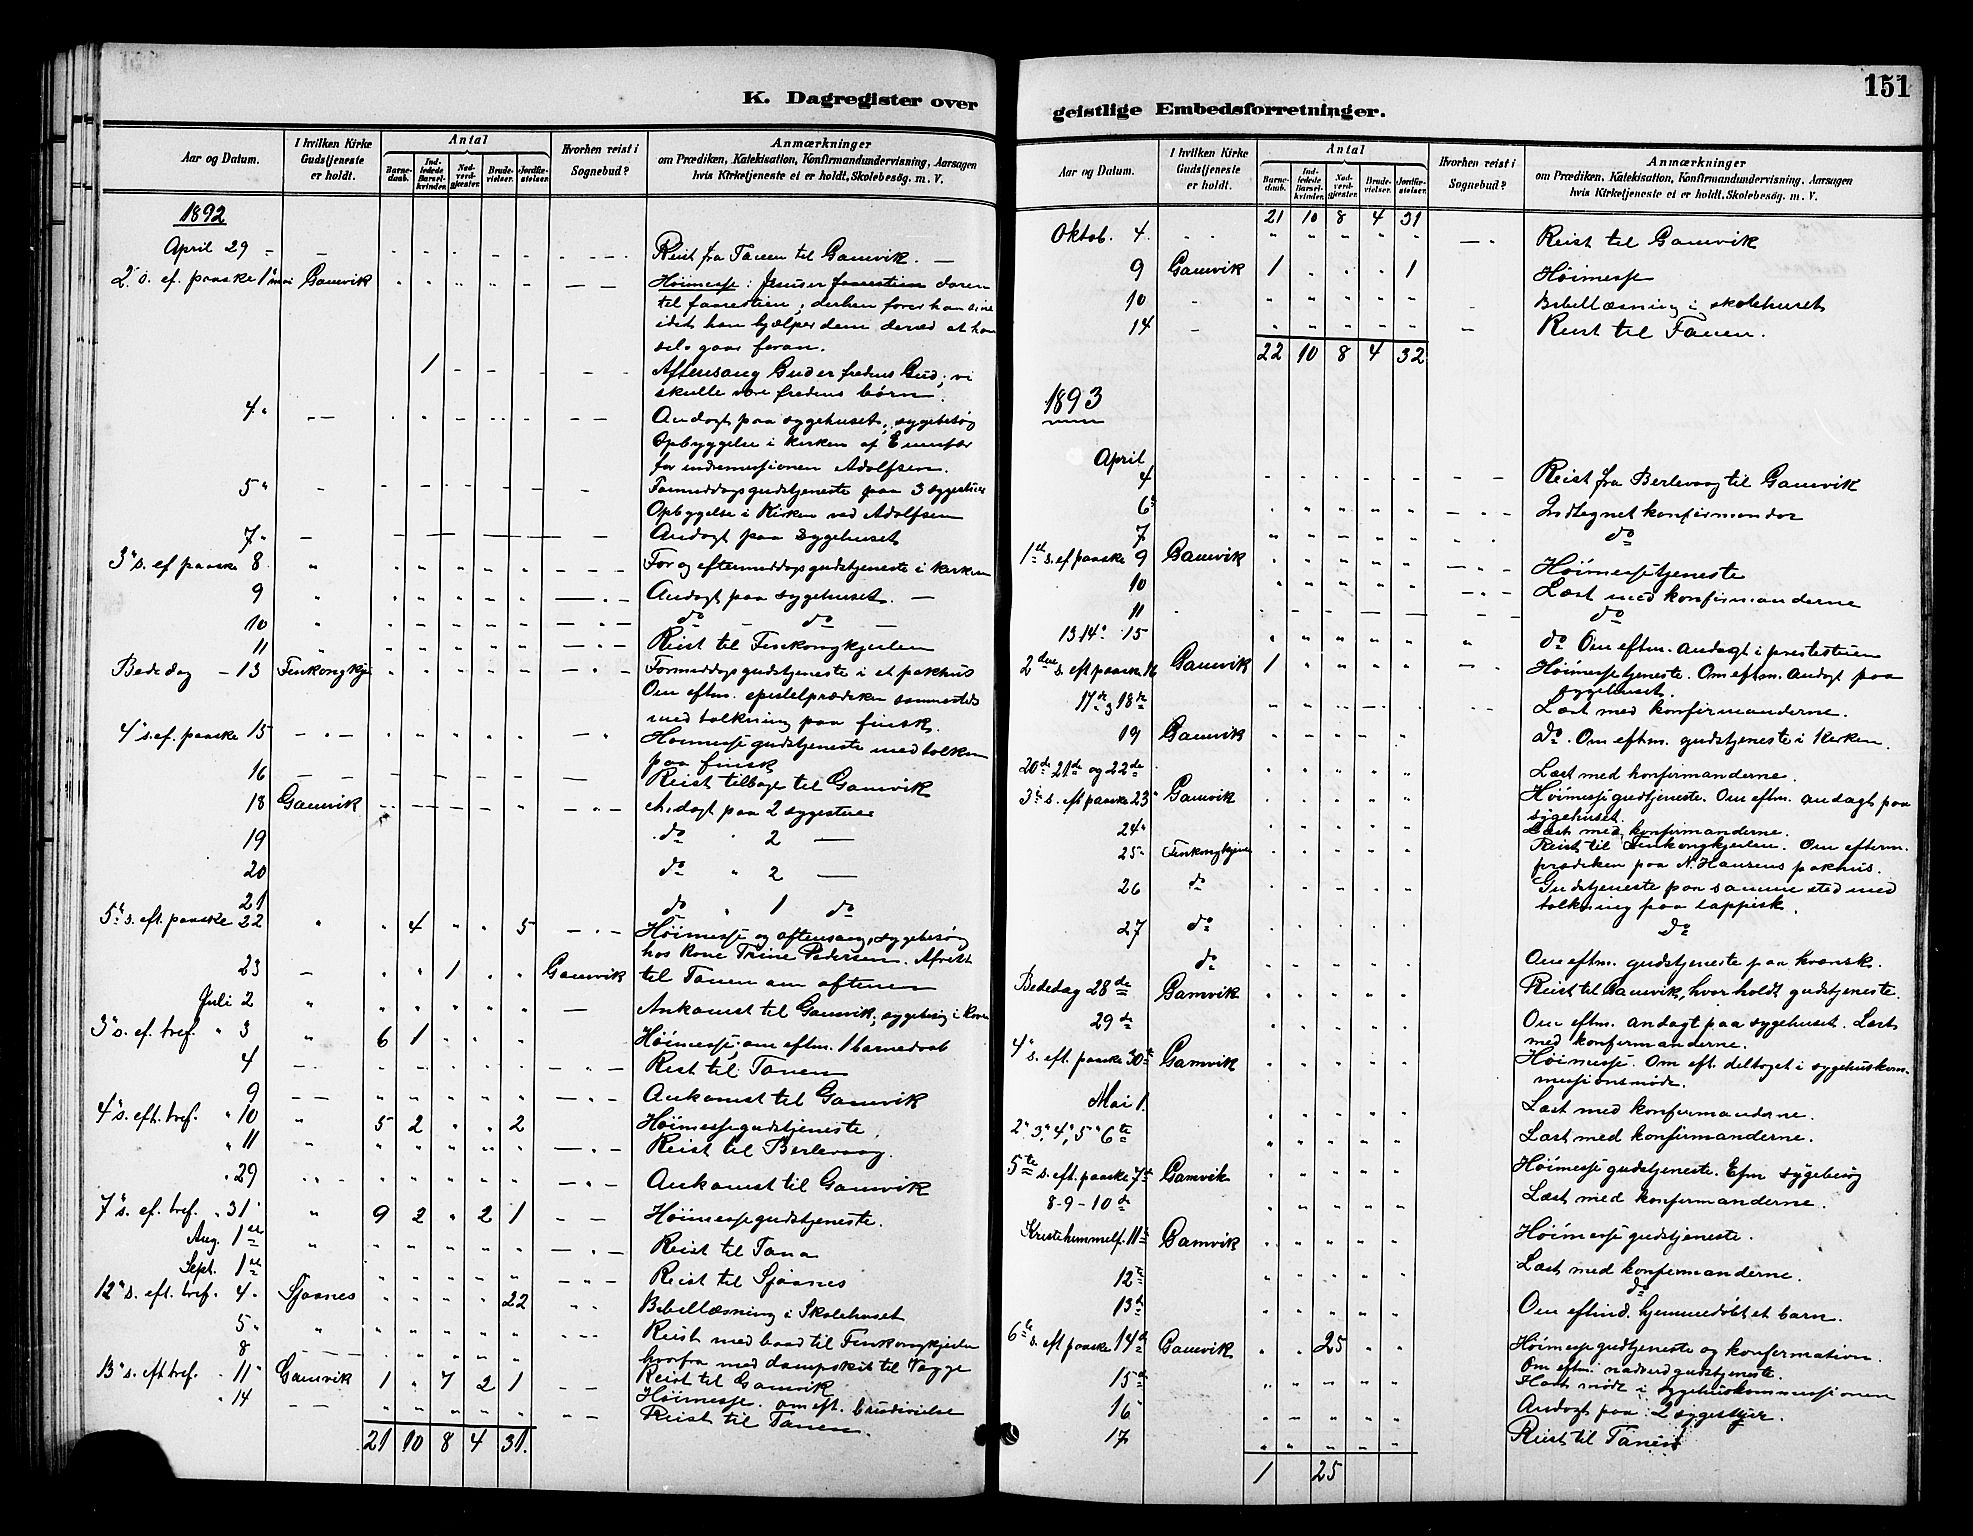 151
K. Dagregister over geistlige Embedsforretninger.
Aar og Datum.
I hvilken Kirke Gudstjeneste er holdt.
Antal
Barnedaab.
Indledede Barselkvinder.
Nadverdgjester.
Brudevielser.
Jordfæstelser.
Hvorhen reist i Sognebud?
Anmærkninger
om Prædiken, Katekisation, Konfirmandundervisning, Aarsagen
hvis Kirketjeneste ei er holdt, Skolebesøg. m. V.
1892
April 29 Reist fra Tanen til Gamvik.
2. s. ef. paaske 1 mai Gamvik Høimesse: Jesus er
til faarestien, derhen fører han
idet han hjælper dem derved at han
selv gaar foran.
1 Aftensang Gud er fredens Gud, vi
skulle være fredens børn.
4 Andagt paa sygehuset, sygebesøg
Opbyggelse i kirken af
for indremissionen Adolfsen.
5 Formiddagsgudstjeneste paa 3 sygestuer
Opbygelse i Kirken ved Adolfsen
7 Andagt paa Sygehuset
3 s. ef paaske 8 For og eftermiddagsgudstjeneste i kirken
9 Andagt paa sygehuset.
10 do do
11 Reist til Finkongkjeilen
Bededag 13 Finkongkje Formiddagsgudstjeneste i et pakhus
Om eftm. epistelprædiken sammesteds
med tolkning paa finsk.
4 s. ef. paaske 15 Høimessegudstjeneste med tolken
paa finsk
16 Reist tilbage til Gamvik
18 Gamvik Andagt paa 2 sygestuer
19 do " 2
20 do " 2
21 do " 1 do
5 s. eft. paaske 22 4 5 Høimesse og aftensang, sygebesøg
hos Kone Trine Pedersen. Afreist
23 1 Gamvik til Tanen om aftenen
Juli 2 Ankomst til Gamvik, sygebesøg i
3 s. ef. tref. 3 6 1 Høimesse, om eftm. 1 barnedaab
4 Reist til Tanen
9 Ankomst til Gamvik
4 s. eft. tref. 10 5 2 2 Høimessegudstjeneste
11 Reist til Berlevaag.
29 Ankomst til Gamvik
7 s. ef. tref. 31 9 2 2 1 Høimessegudstjeneste.
Aug. 1 Reist til Tana
Sept. 1 Reist til Sjaanes
12 s. eft. tref. 4 Sjaanes 22 Bibellæsning i Skolehuset
5 Reist med baad til Finkongkjeilen
8 hvorfra med dampskib til
13 s. eft tref. 11 Gamvik 1 7 2 1 Reist til Gamvik
Høimesse. om eft. brudevielse
14 Reist til Tanen.
21 10 8 4 31
Aar og Datum.
I hvilken Kirke Gudstjeneste er holdt.
Antal
Barnedaab.
Indledede Barselkvinder.
Nadverdgjester.
Brudevielser.
Jordfæstelser.
Hvorhen reist i Sognebud?
Anmærkninger
om Prædiken, Katekisation, Konfirmandundervisning, Aarsagen
hvis Kirketjeneste ei er holdt, Skolebesøg. m. V.
21 10 8 4 31
Oktob. 4. Reist til Gamvik
9 Gamvik 1 1 Høimesse
10 Bibellæsning i skolehuset
14 Reist til Tanen.
22 10 8 4 32
1893
April
4 Reist fra Berlevaag til Gamvik
6 Indtegnet konfirmander
7 do
1 s. ef paaske 9 Gamvik Høimessetjeneste
10 Læst med konfirmanderne
11 do
13 14 15 do Om eftm. andagt i prestestuen
2 s. eft paaske 16 Gamvik 1 Høimessetjeneste. Om eftm. Andagt paa
sygehuset.
17 18 Læst med konfirmanderne.
19 Gamvik do. Om eftm. gudstjeneste i Kirken.
20 21 og 22 Læst med konfirmanderne.
3 s. eft paaske 23 Gamvik Høimessegudstjeneste. Om eftm. andagt paa
sygehuset.
24 Læst med konfirmanderne.
25 Finkongkjeilen Reist til Finkongkjeilen. Om efterm.
prædiken paa N. Hansens pakhus.
26 do Gudstjeneste paa samme sted med
tolkning paa lappisk.
27 do do
do Om eftm. gudstjeneste paa kvænsk.
Bededag 28 Gamvik Reist til Gamvik, hvor holdt gudstjeneste.
29 Om eftm. andagt paa sygehuset. Læst
med konfirmanderne.
4 s. eft. paaske 30 Gamvik Høimesse. Om eft. deltaget i sygehuskom-
missionsmøde.
Mai 1. Læst med konfirmanderne.
2. 3. 4. 5. 6 Læst med konfirmanderne.
5 s. eft. paaske 7 Gamvik Høimessegudstjeneste. Efm sygebesøg
8-9-10 Læst med konfirmanderne.
Kristihimmelf. 11 Gamvik Høimessegudstjeneste.
12 Læst med konfirmanderne.
do
13 Om eftmd. hjemmedøbt et barn.
6 s. eft paaske 14 Gamvik 25 Høimessegudtjeneste og konfirmation.
15 Om eftm. nadverdgudstjeneste.
Havt møde i sygehuskommissionen
16 Andagt paa 2
17 Reist til Tanen
1 25